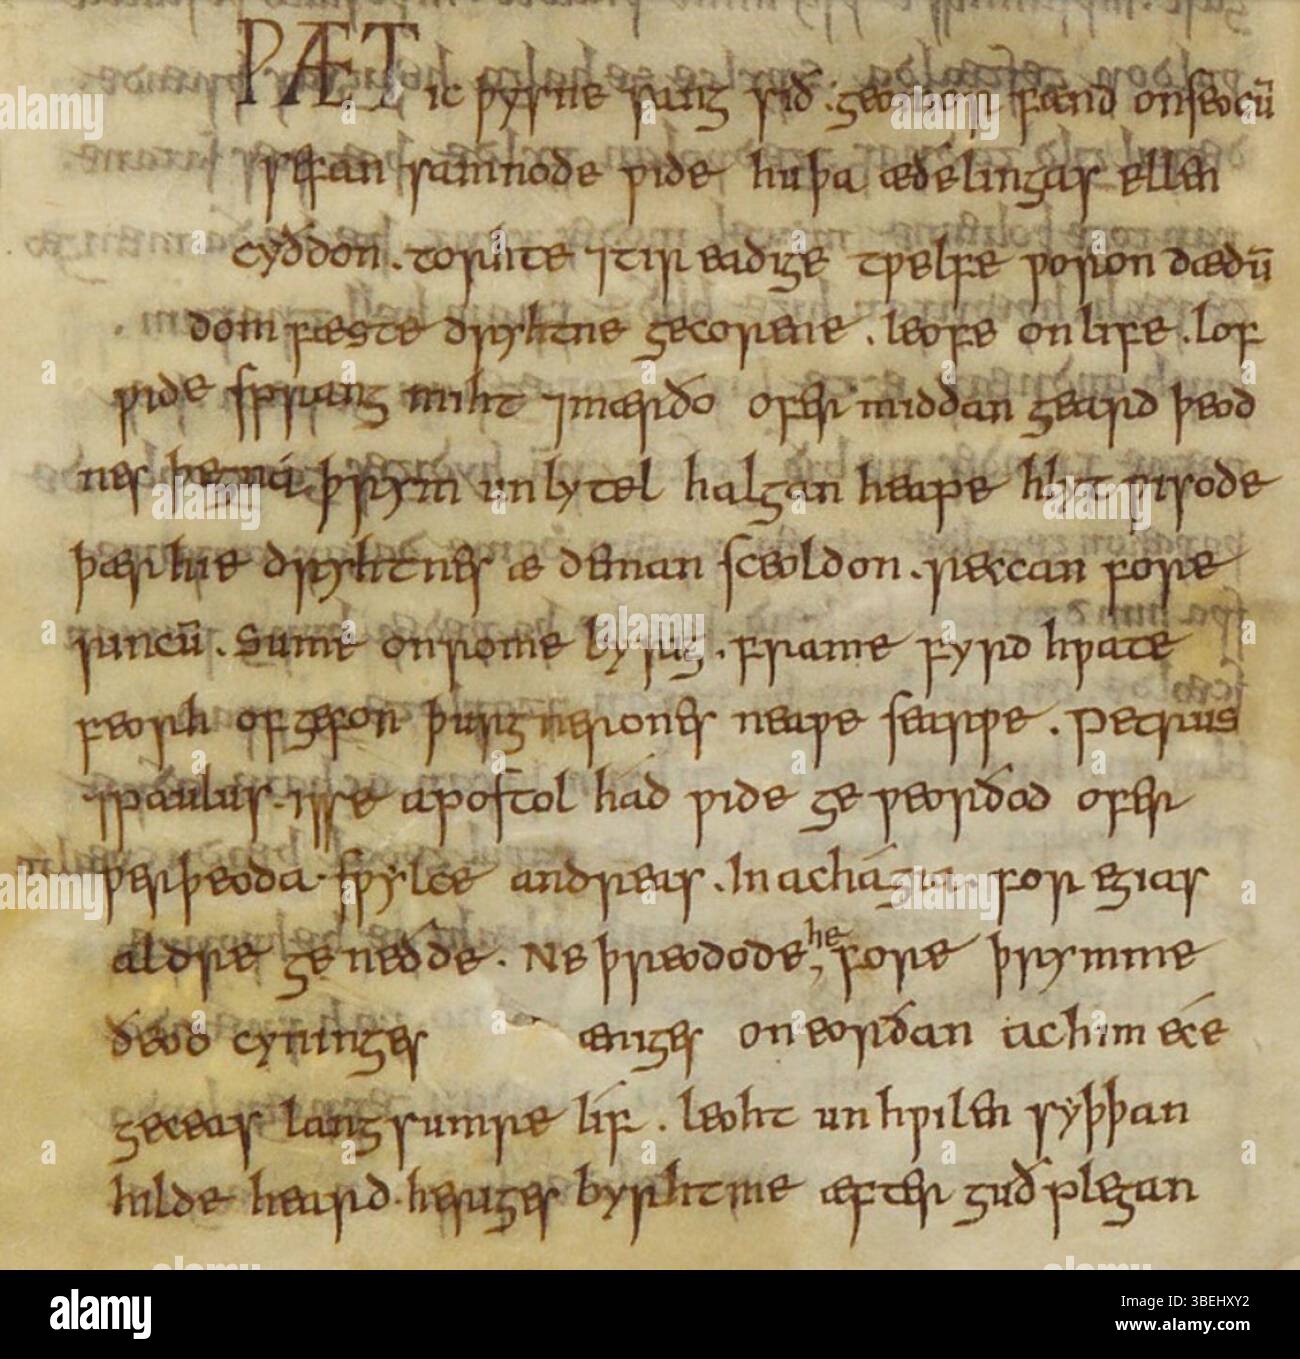 ǷÆT ic þysne sang sið . geomor fand onseocū
sefan samnode ƿide huþa æðelingas ellen
cyðdon . torhte ⁊tir eadige tƿelfe ƿæron dædū
dom fæste dryhtne gecorene . leofe onlife . lof
ƿide sprang miht ⁊mærðo ofer middan geard þeod
nes þegna þrym unlytel halgan heape hlyt ƿisode
þær hie dryhtnes æ deman sceoldon . reccan fore
rincū . Sume onrome byrig . frame fyrd hƿate
feorh ofgefon þurg nerones nearƿe searƿe . Petrus
⁊paulus . is se apostol hád ƿide ge ƿeorðod ofer
ƿerþeoda . sƿylce andreas . In achagia . for egias
aldre ge neðde . Ne þreodode he fore þrymme
ðeod cyninges æniges oneorðan ac him éce
geceas langsumre lif . leoht un hƿilen syþþan
hilde heard . heriges byrhtme æfter guð plegan
alamy
Image ID: 3BEHXY2
www.alamy.com